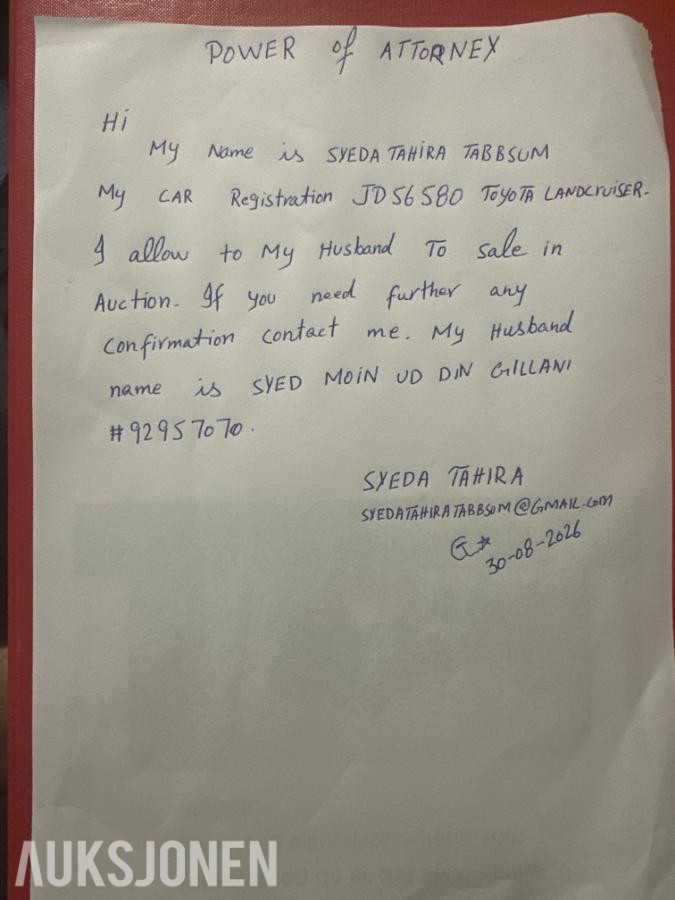 POWER of ATTORNEX
Hi
My Name is SYEDA TAHIRA TABBSUM
My CAR Registration JD56580 TOYOTA LANDCruiSER.
I allow to My Husband To Sale in
Auction. If you need further any
confirmation contact me. My Husband
name is SYED MOIN UD DIN GILLANI
#92957070.
SYEDA TAHIRA
SYEDATAHIRATABBSUM@GMAIL.com
30-08-2026
AUKSJONEN